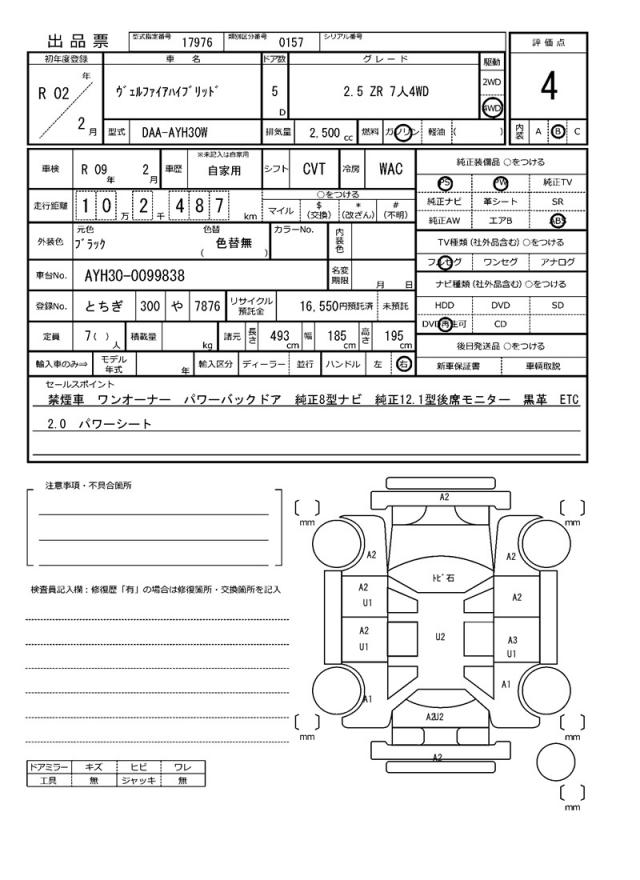 出品票 型式指定番号 17976 類別区分番号 0157 シリアル番号
初年度登録 車名 ドア数 グレード 駆動 評価点
R 02 年 2 月 ヴェルファイアハイブリッド 5 D 2.5 ZR 7人4WD 2WD 4WD 4
型式 DAA-AYH30W 排気量 2,500 cc 燃料 ガソリン 軽油 ( ) 内装 A B C
車検 R 09 年 2 月 車歴 ※未記入は自家用 自家用 シフト CVT 冷房 WAC 純正装備品 ○をつける
PS PW 純正TV
走行距離 1 0 万 2 千 4 8 7 km ○をつける 純正ナビ 革シート SR
マイル $ (交換) * (改ざん) # (不明) 純正AW エアB ABS
外装色 元色 ブラック 色替 ( 色替無 ) カラーNo. 内装色 TV種類 (社外品含む) ○をつける
フルセグ ワンセグ アナログ
車台No. AYH30-0099838 名変期限 月 日 ナビ種類 (社外品含む) ○をつける
登録No. とちぎ 300 や 7876 リサイクル預託金 16,550円預託済 未預託 HDD DVD SD
DVD再生可 CD
定員 7( ) 人 積載量 kg 諸元 長さ 493 cm 幅 185 cm 高さ 195 cm 後日発送品 ○をつける
輸入車のみ⇒ モデル年式 年 輸入区分 ディーラー 並行 ハンドル 左 右 新車保証書 車輌取説
セールスポイント
禁煙車 ワンオーナー パワーバックドア 純正8型ナビ 純正12.1型後席モニター 黒革 ETC
2.0 パワーシート
注意事項・不具合箇所
A2
mm mm
A2 A2
トビ石
検査員記入欄：修復歴「有」の場合は修復箇所・交換箇所を記入
A2 U1 A2
A2 U1 U2 A3 U1
A1 A1
A2U2
mm mm
A2
ドアミラー キズ ヒビ ワレ
工具 無 ジャッキ 無
mm